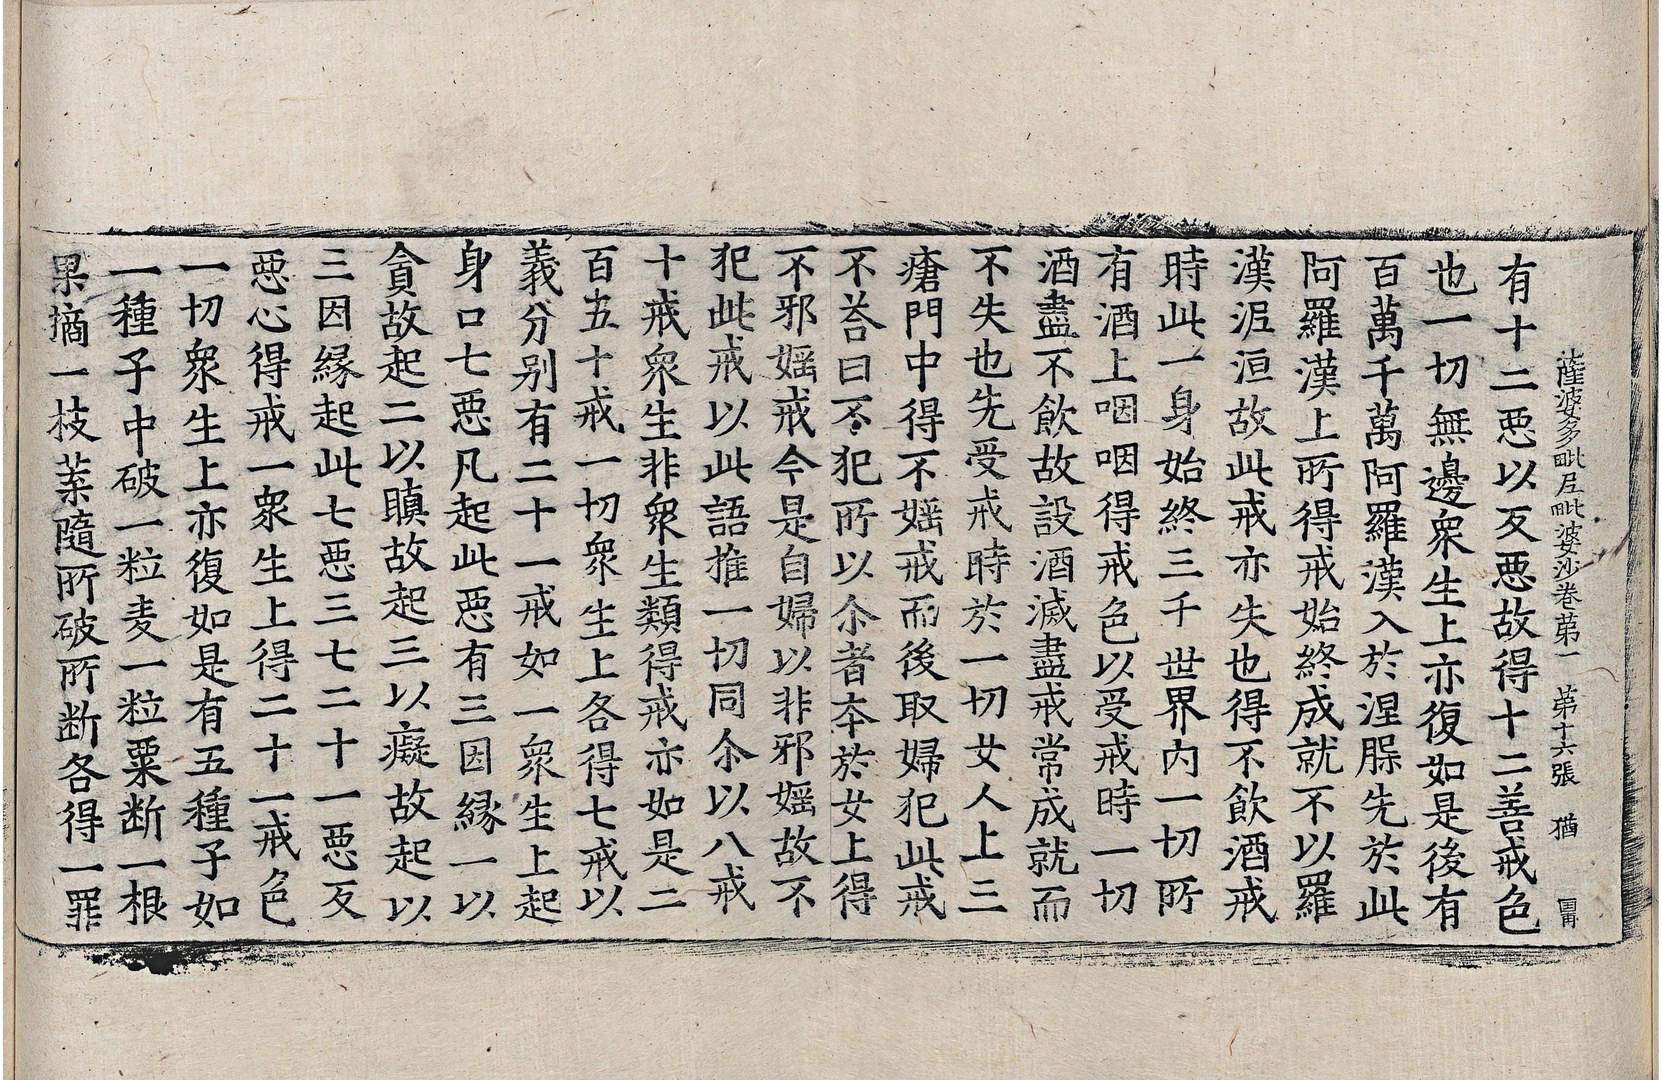 薩婆多毗尼毗婆沙卷苐一　苐十六張　猶
有十二惡以反惡故得十二善戒色
也一切無邊衆生上亦復如是後有
百萬千萬阿羅漢入於涅脲先於此
阿羅漢上所得戒始終成就不以羅
漢泥洹故此戒亦失也得不飲酒戒
時此一身始終三千世界内一切所
有酒上咽咽得戒色以受戒時一切
酒盡不飲故設酒滅盡戒常成就而
不失也先受戒時於一切女人上三
瘡門中得不婬戒而後取婦犯此戒
不荅曰不犯所以尒者本於女上得
不邪婬戒今是自婦以非邪婬故不
犯此戒以此語推一切同尒以八戒
十戒衆生非衆生類得戒亦如是二
百五十戒一切衆生上各得七戒以
義分别有二十一戒如一衆生上起
身口七惡凡起此惡有三因緣一以
貪故起二以瞋故起三以癡故起以
三因緣起此七惡三七二十一惡反
惡心得戒一衆生上得二十一戒色
一切衆生上亦復如是有五種子如
一種子中破一粒麦一粒粟断一根
果摘一枝葉隨所破所断各得一罪